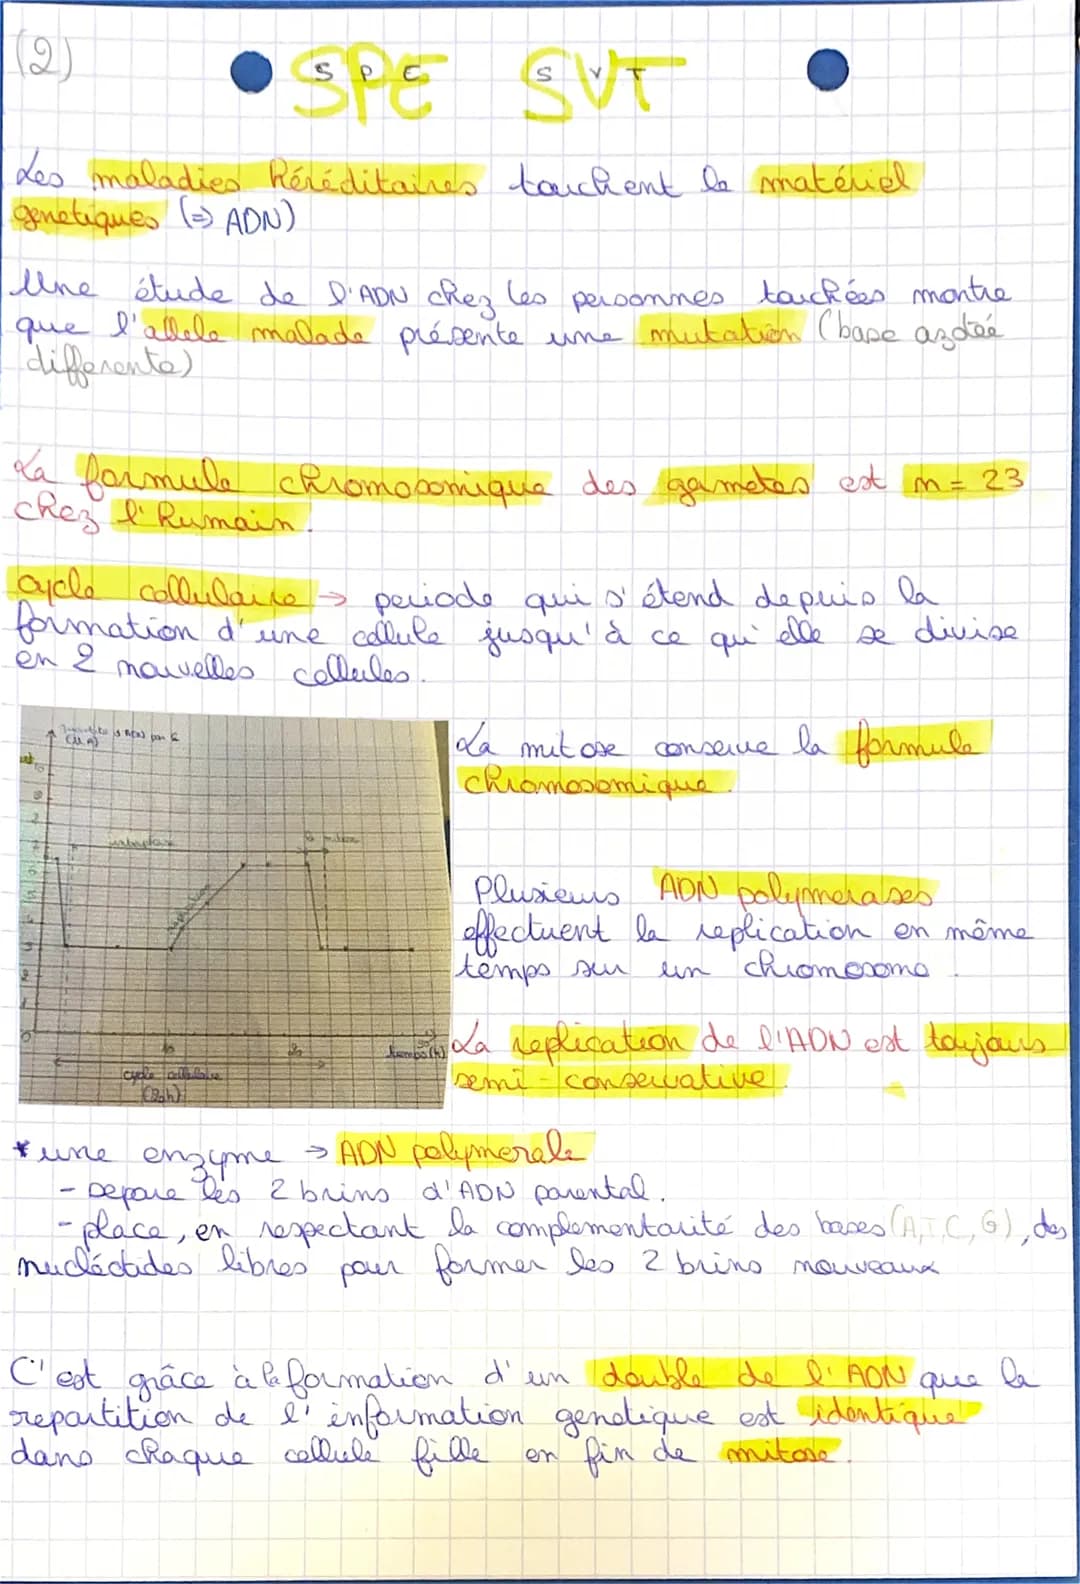 (2)
SPE SVT
Les maladies héréditaires touchent le matériel
genetiques (=> ADN)
Une étude de l'ADN chez les personnes touchées montre
que l'allele malade présente une mutation (base azotée
differente)
La formule chromosomique des gametes est n = 23
chez l'humain.
cycle cellulaire → periode qui s'étend depuis la
formation d'une cellule jusqu'à ce qu'elle se divise
en 2 nouvelles cellules.
Quantité d'ADN par
(U.A)
interphase
replication
10
20
temps (h)
cycle cellulaire
(20h)
La mitose conserve la formule
chromosomique.
Plusieurs ADN polymerases
effectuent la replication en même
temps sur un chromosome.
La replication de l'ADN est toujours
semi-conservative.
* une enzyme → ADN polymerale
- separe les 2 brins d'ADN parental.
- place, en respectant la complementarité des bases (A,T,C,G), des
nucléotides libres pour former les 2 brins nouveaux
C'est grâce à la formation d'un double de l'ADN que la
repartition de l'information genetique est identique
dans chaque cellule fille en fin de mitose.